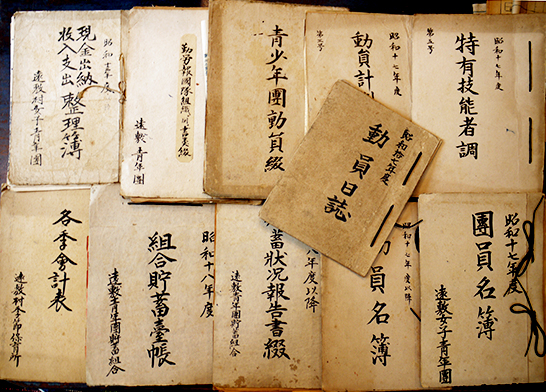 昭和十五年度
現金出納
收入支出 整理簿
遠敷村女子青年團
勤労報國隊組織ニ関スル書類綴
遠敷青年團
第三号
青少年團動員綴
昭和十七年度
動員計
第五号
昭和十七年度
特有技能者調
昭和拾七年度
動員日誌
各季會計表
遠敷村季節保育所
昭和十八年度
組合貯蓄臺帳
遠敷女子青年團貯蓄組合
年度以降
蓄狀況報告書綴
遠敷青年團貯蓄組合
昭和十七年度以降
員名簿
昭和十七年度
團員名簿
遠敷女子青年團